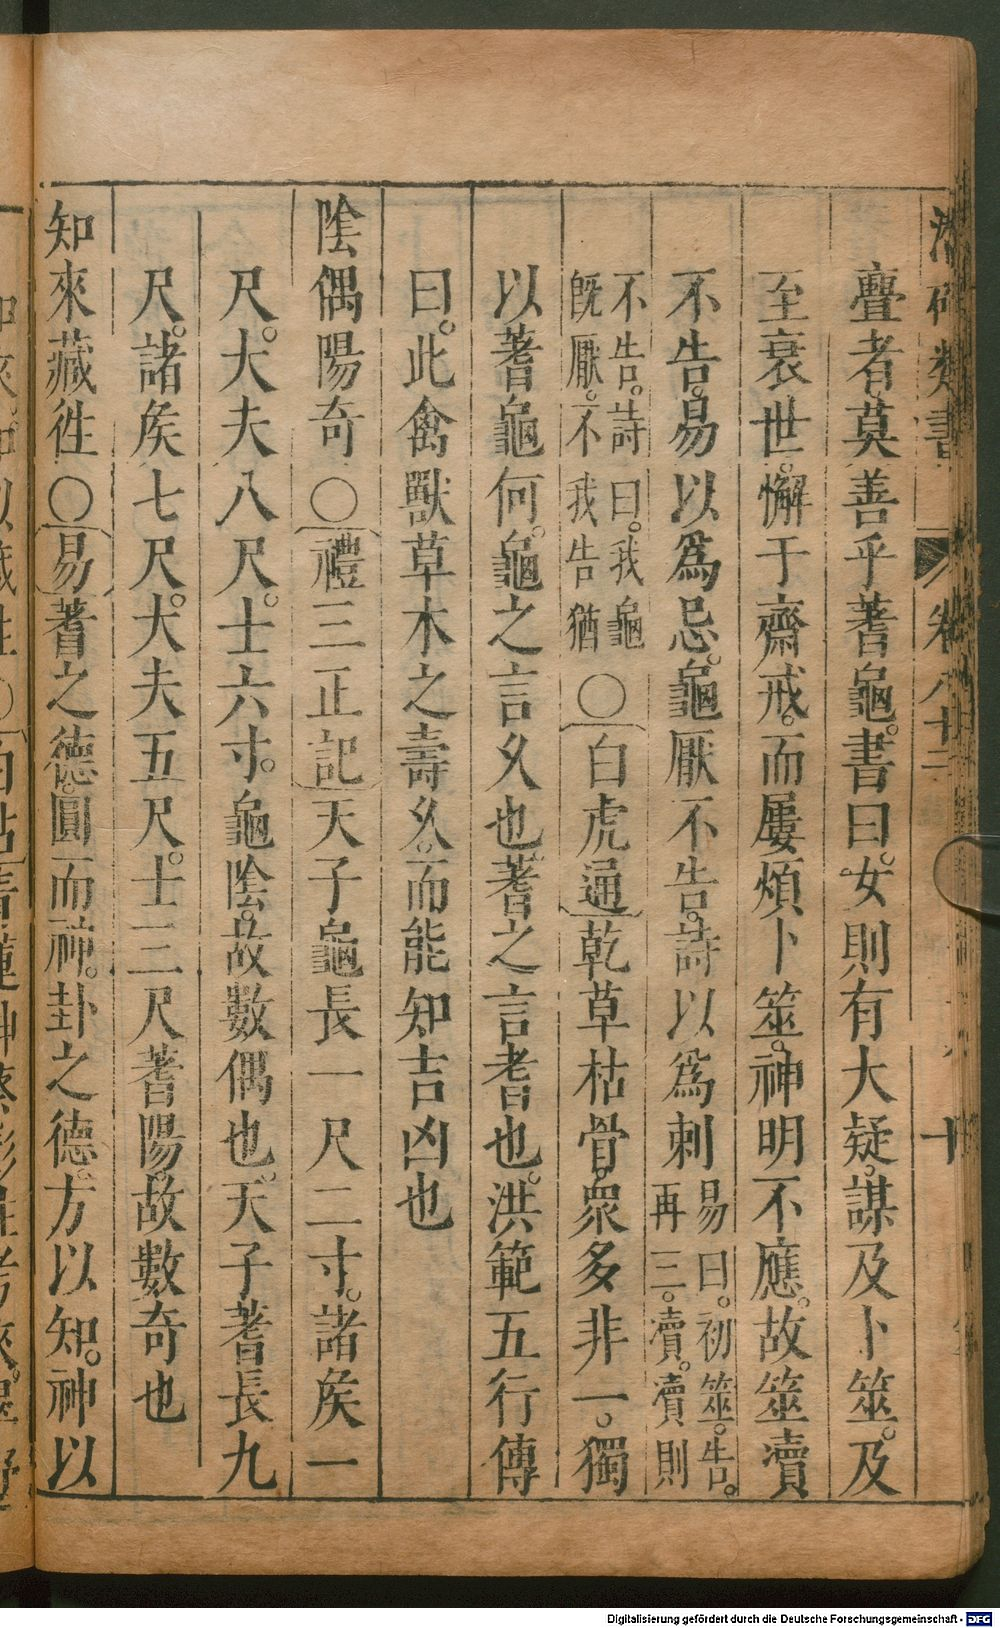 類書 卷八十二 十
亹者莫善乎蓍龜書曰女則有大疑謀及卜筮及
至衰世懈于齋戒而屢煩卜筮神明不應故筮瀆
不告易以為忌龜厭不告詩以為刺易曰初筮告
再三瀆瀆則
不告詩曰我龜
既厭不我告猶
○白虎通乾草枯骨衆多非一獨
以蓍龜何龜之言久也蓍之言耆也洪範五行傳
曰此禽獸草木之壽久而能知吉凶也
陰偶陽奇○禮三正記天子龜長一尺二寸諸侯一
尺大夫八尺士六寸龜陰故數偶也天子蓍長九
尺諸侯七尺大夫五尺士三尺蓍陽故數奇也
知來藏徃○易蓍之德圓而神卦之德方以知神以
Digitalisierung gefördert durch die Deutsche Forschungsgemeinschaft - DFG